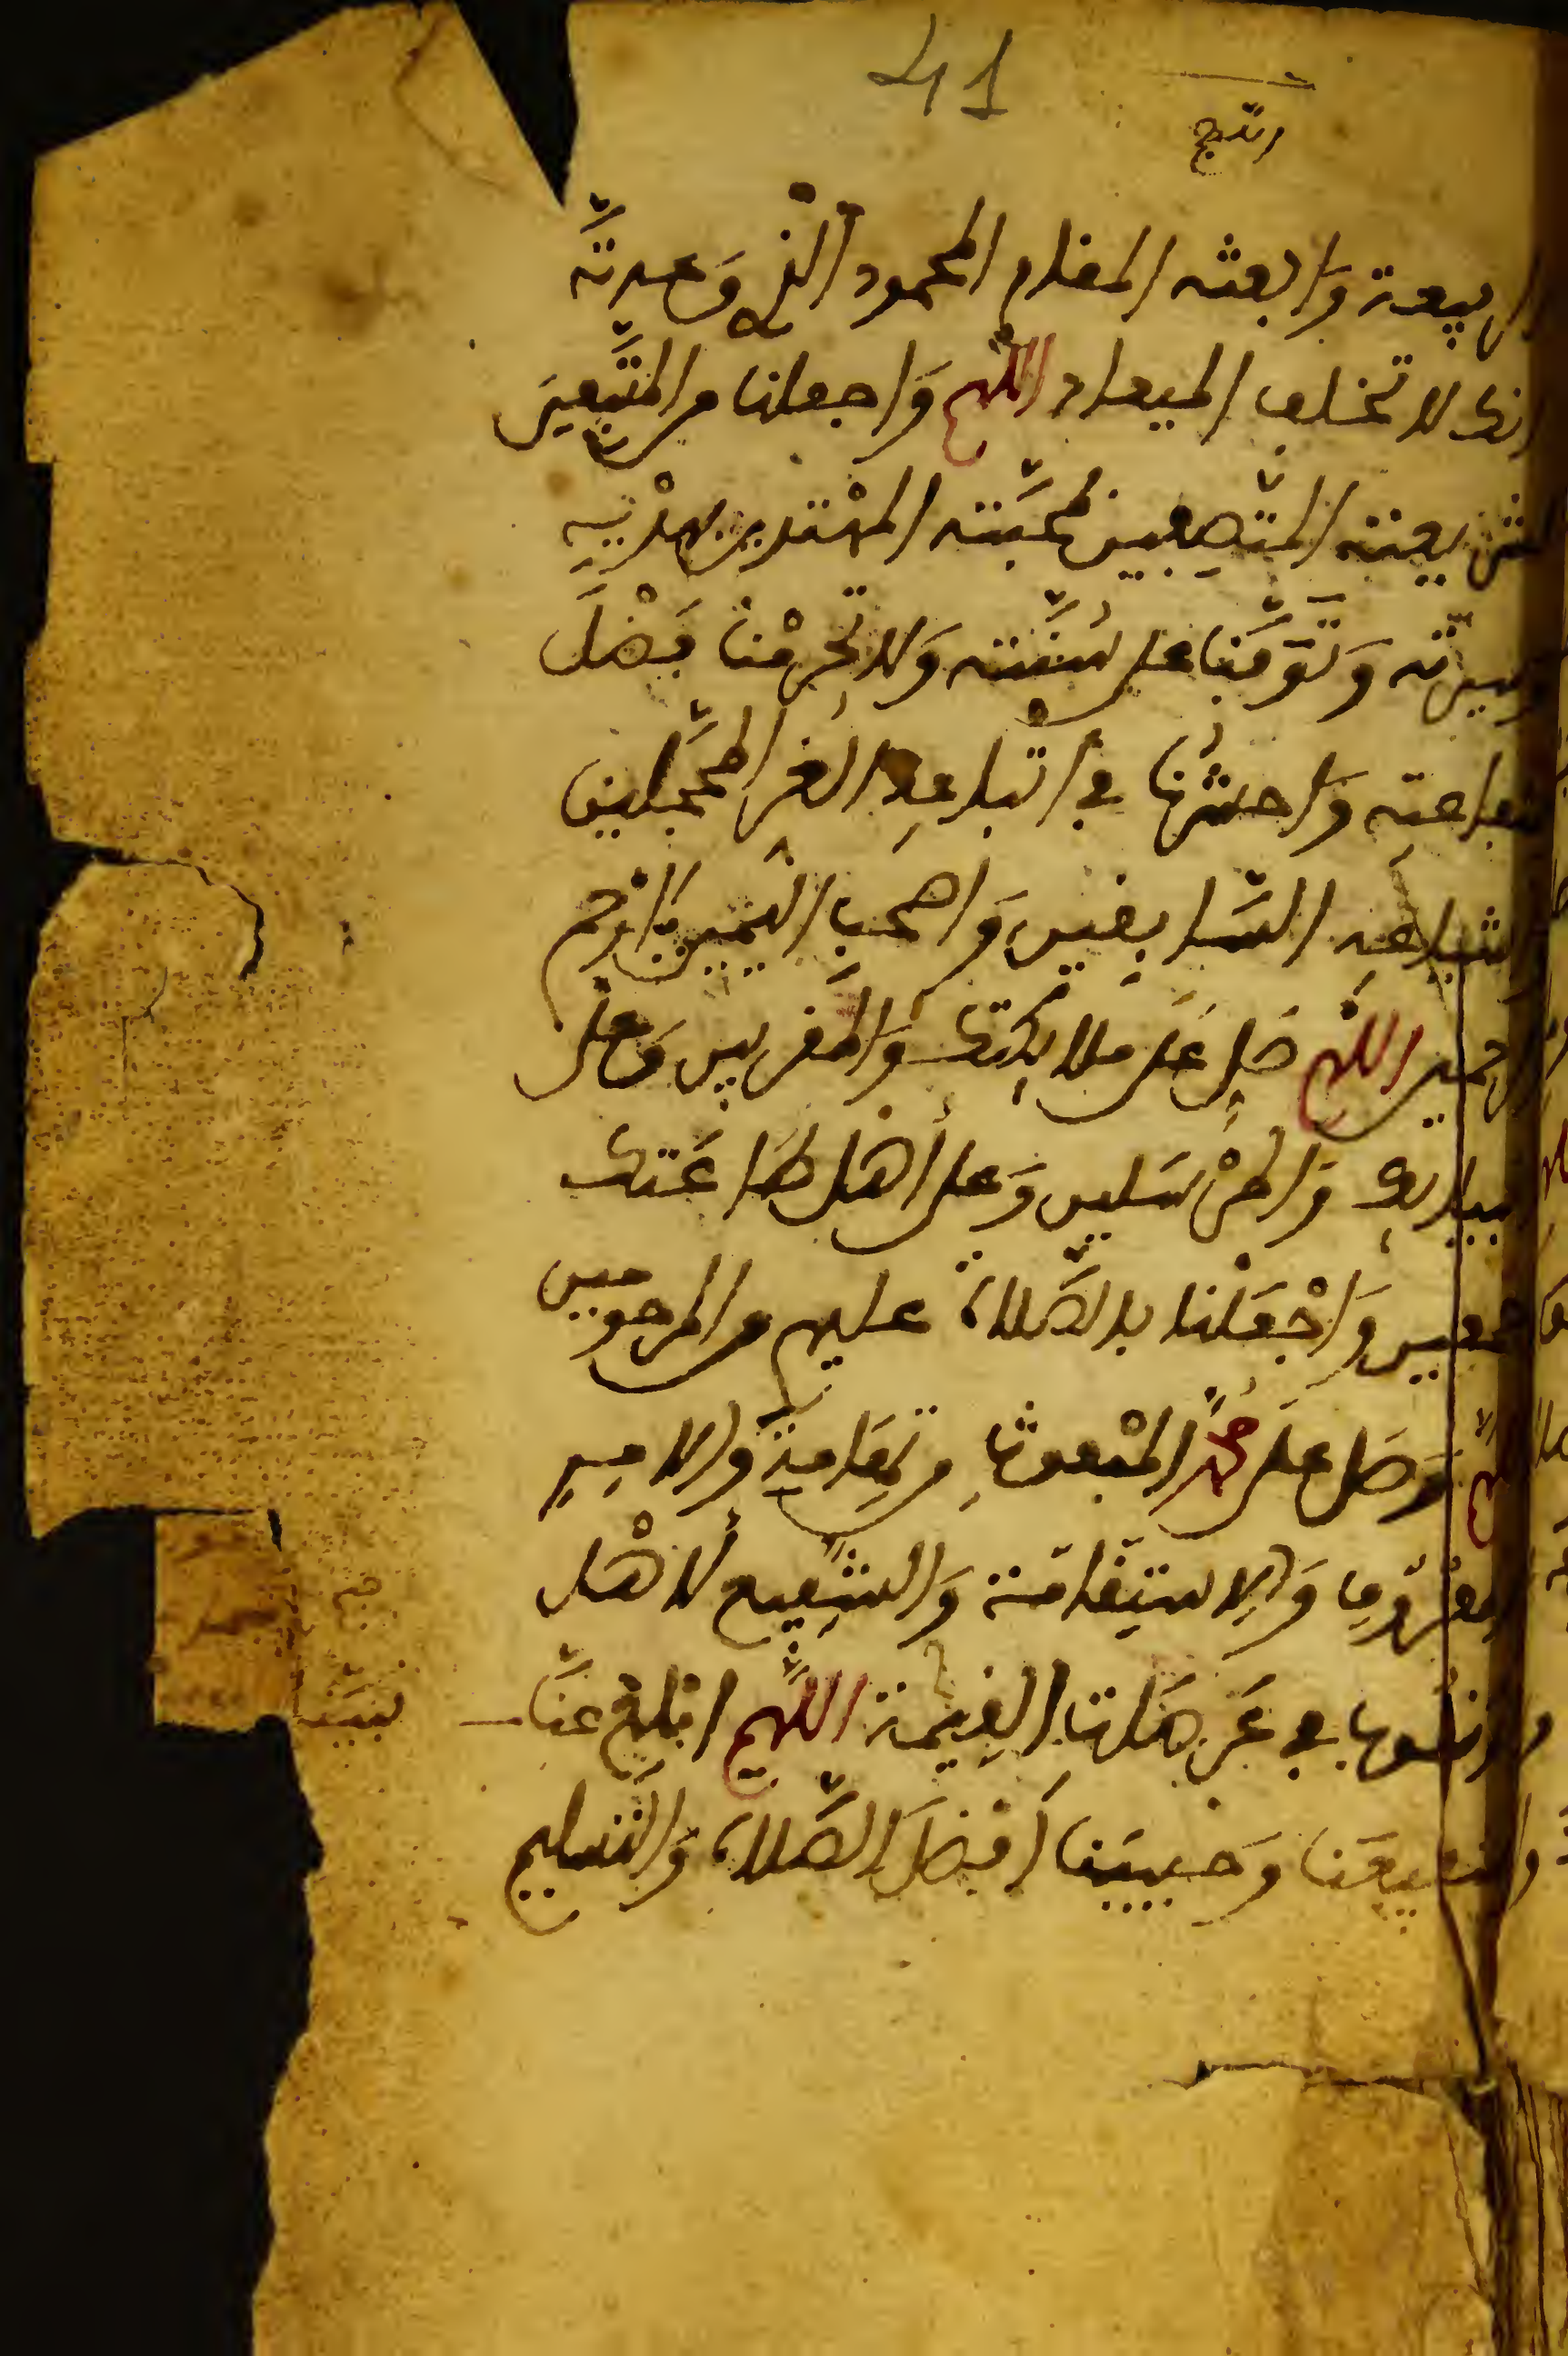 41
الربيعة وَابعثه المقام المحمود الّذي وَعدتّه
انك لا تخلف الميعاد اللّهم وَاجعلنا من المتَّبعينَ
لشريعته المتّصِفين بمحبَّته المهْتدين بهدْيِهِ
وسيرته وَتَوَفَّنَا على سُنَّته وَلا تحْرِمْنا فَضْلَ
شفاعتِه وَاحشُرنا في اتْباعِهِ الغرِ المحَجَّلين
واشياعِهِ السَّابِقينَ وَاصحبِ اليَمينِ يَا ارْحم
الرحمين اللّهم صَلِ عَلى ملائِكتك وَالمقَربين وَعلى
انبيائِك وَالمرْسَلين وَعلى أهل طَاعَتك
اجمعين وَاجْعَلْنا بالصَّلاة عليهم من المرحومين
اللّهم وَصَل على محَمَّدٍ المبْعوثِ من تِهَامَةَ والامِرِ
بالمعْرُوفِ وَالِاستِقامَة وَالشَّفِيعِ لأهْل
الذنُوبِ في عَرَصَاتِ القِيمة اللّهم ابْلِغْ عنَّا
نبيَّنا
وشفيعَنا وَحَبيبَنا أفضَلَ الصَّلاة وَالتسليم